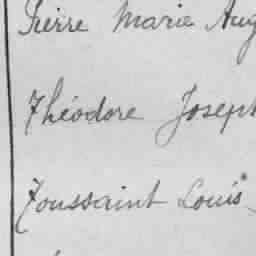 Pierre Marie Aug
Théodore Joseph
Toussaint Louis